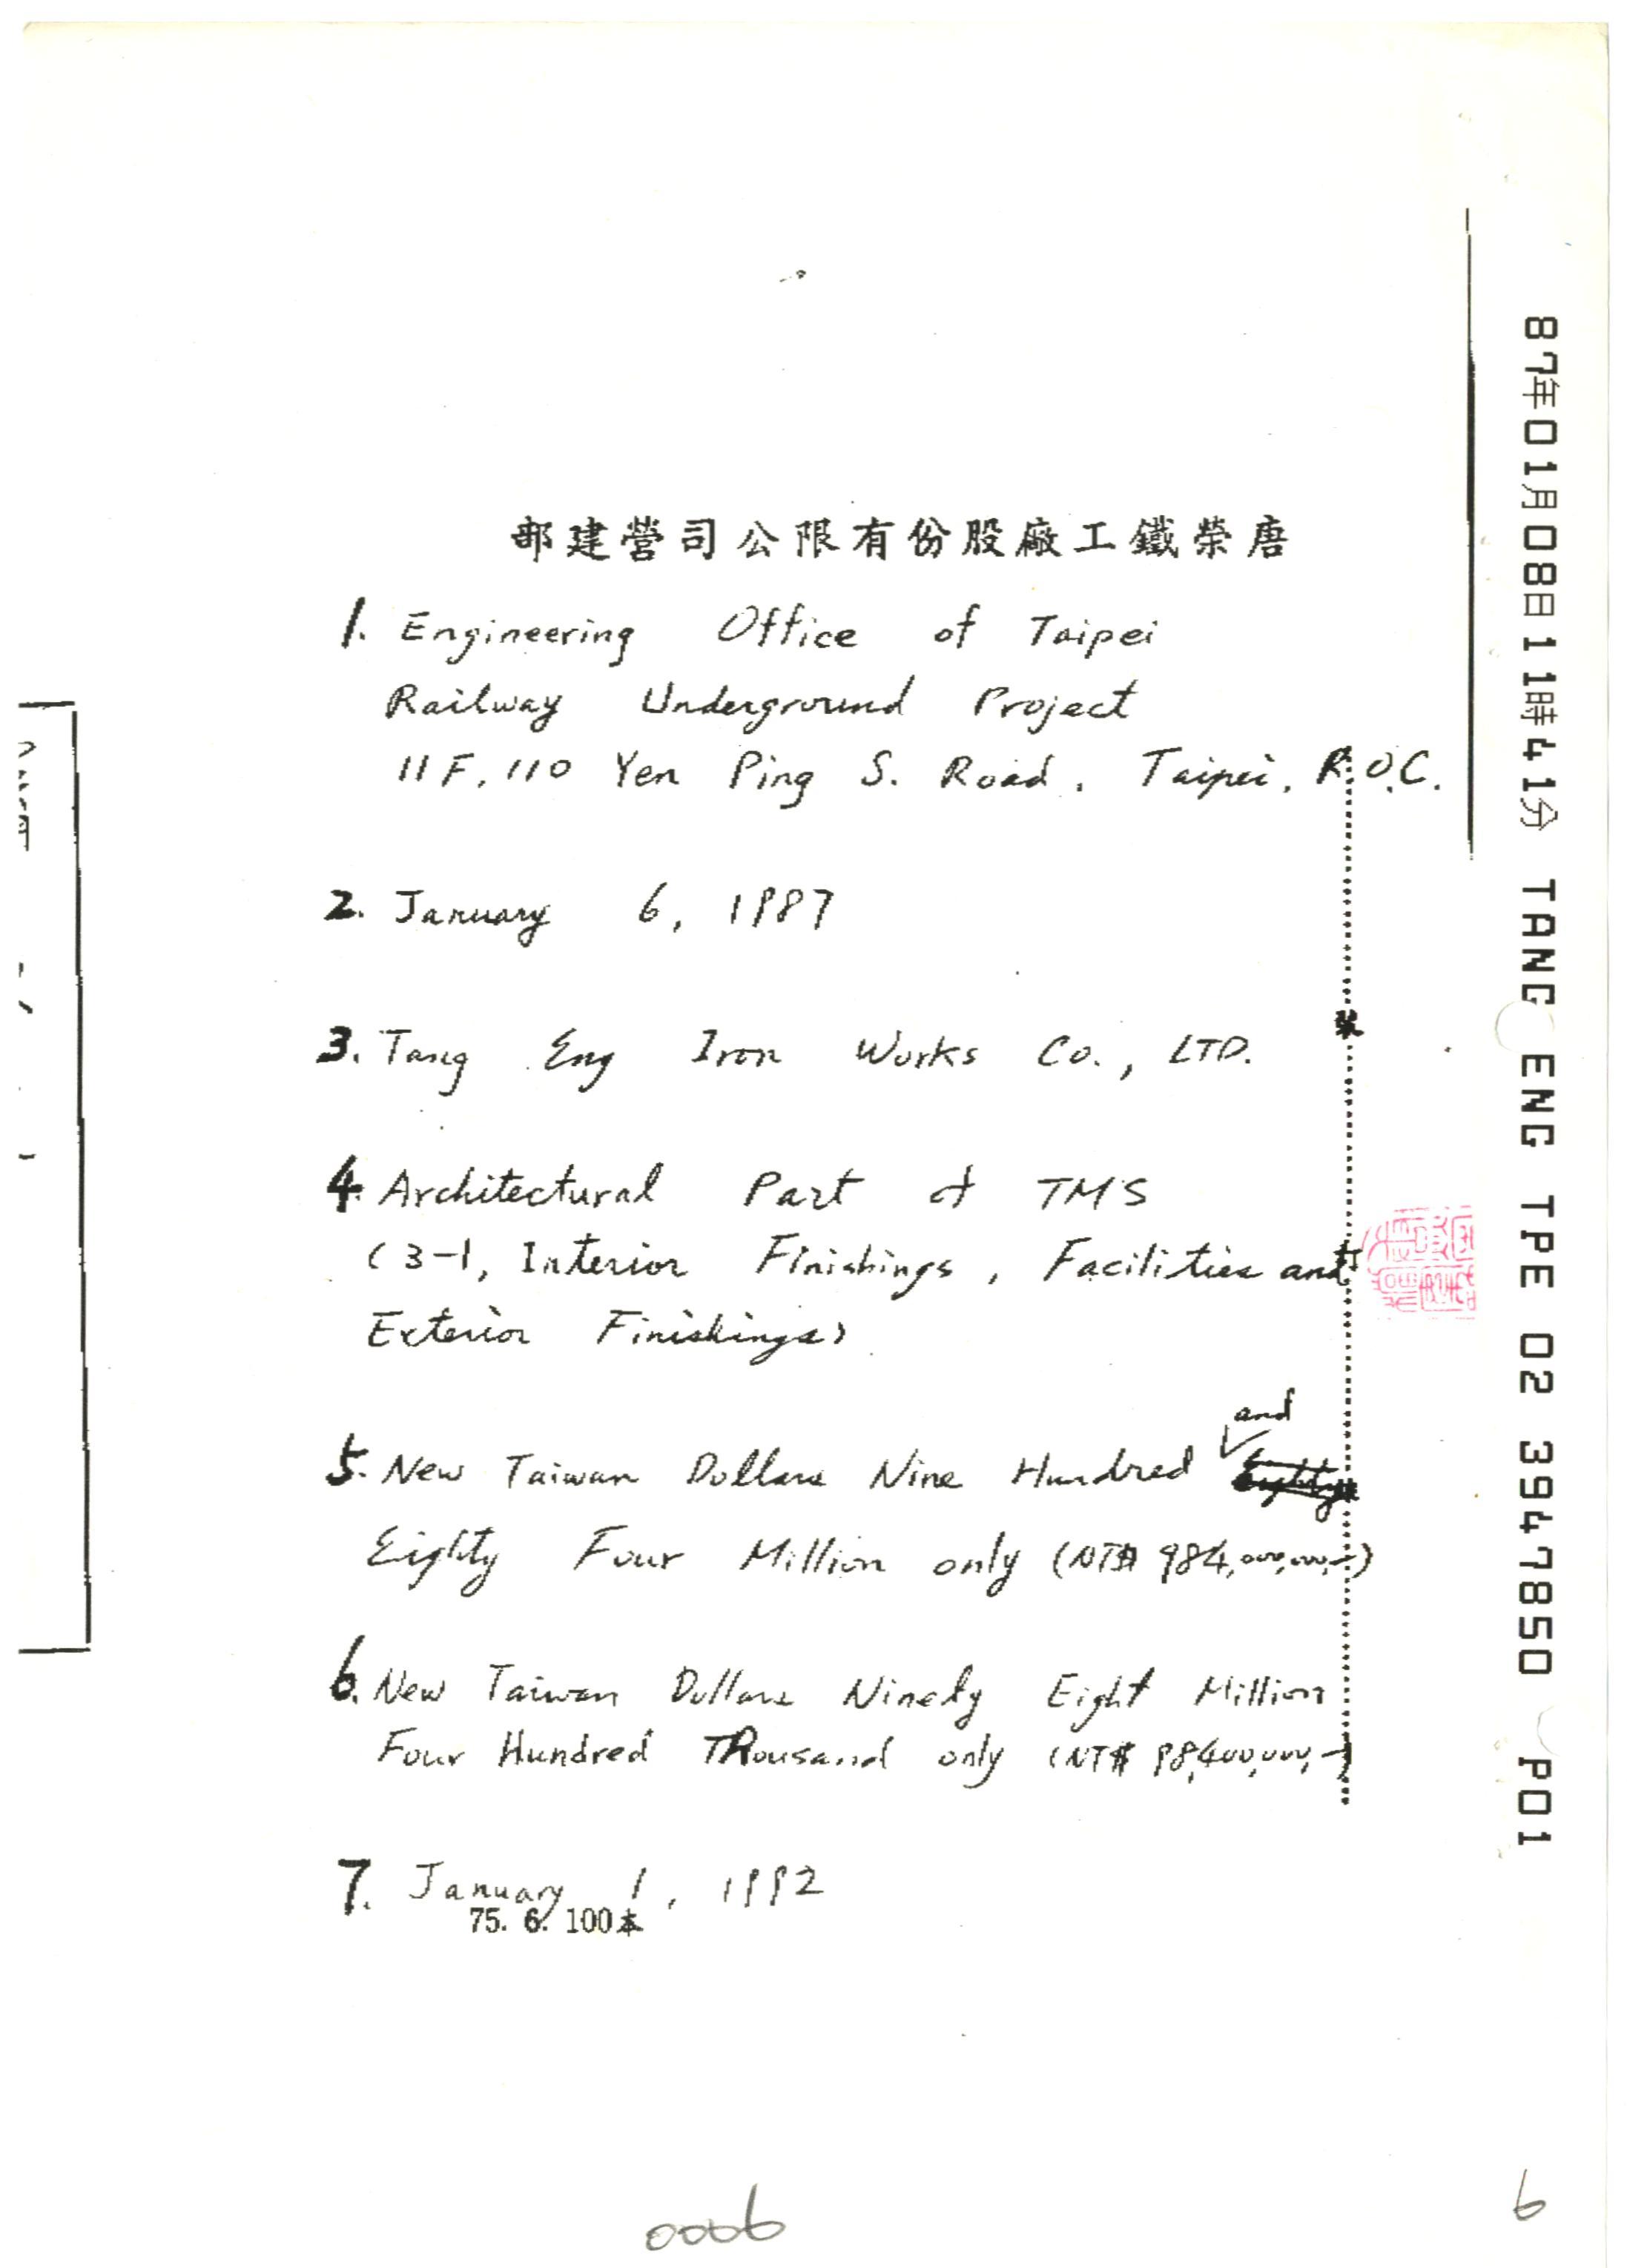 部建營司公限有份股廠工鐵榮唐
1. Engineering Office of Taipei
Railway Underground Project
11F, 110 Yen Ping S. Road, Taipei, R.O.C.
2. January 6, 1987
3. Tang Eng Iron Works Co., LTD.
4. Architectural Part of TMS
(3-1, Interior Finishings, Facilities and
Exterior Finishings)
and
5. New Taiwan Dollars Nine Hundred Eighty
Eighty Four Million only (NT$ 984,000,000.-)
6. New Taiwan Dollars Ninety Eight Million
Four Hundred Thousand only (NT$ 98,400,000.-)
7. January 1, 1992
75. 6. 100本
裝
87年01月08日11時41分 TANG ENG TPE 02 3947850 P01
0006
6